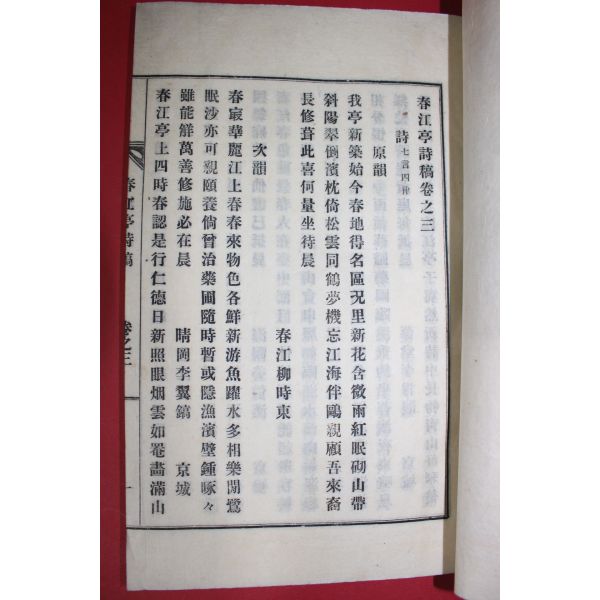 春江亭詩稿卷之三
詩 七言四律
原韻
我亭新築始今春地得名區況里新花含微雨紅眠砌山帶
斜陽翠倒濱枕倚松雲同鶴夢機忘江海伴鷗親顧吾來裔
長修葺此喜何量坐待晨 春江柳時東
次韻
春宸華麗江上春春來物色各鮮新游魚躍水多相樂閒鷺
眠沙亦可親頤養倘曾治藥圃隨時暫或隱漁濱壁鍾啄々
雖能鮮萬善修施必在晨 晴岡李翼鎬 京城
春江亭上四時春認是行仁德日新照眼烟雲如罨畵滿山
春江亭詩稿 卷之三 一